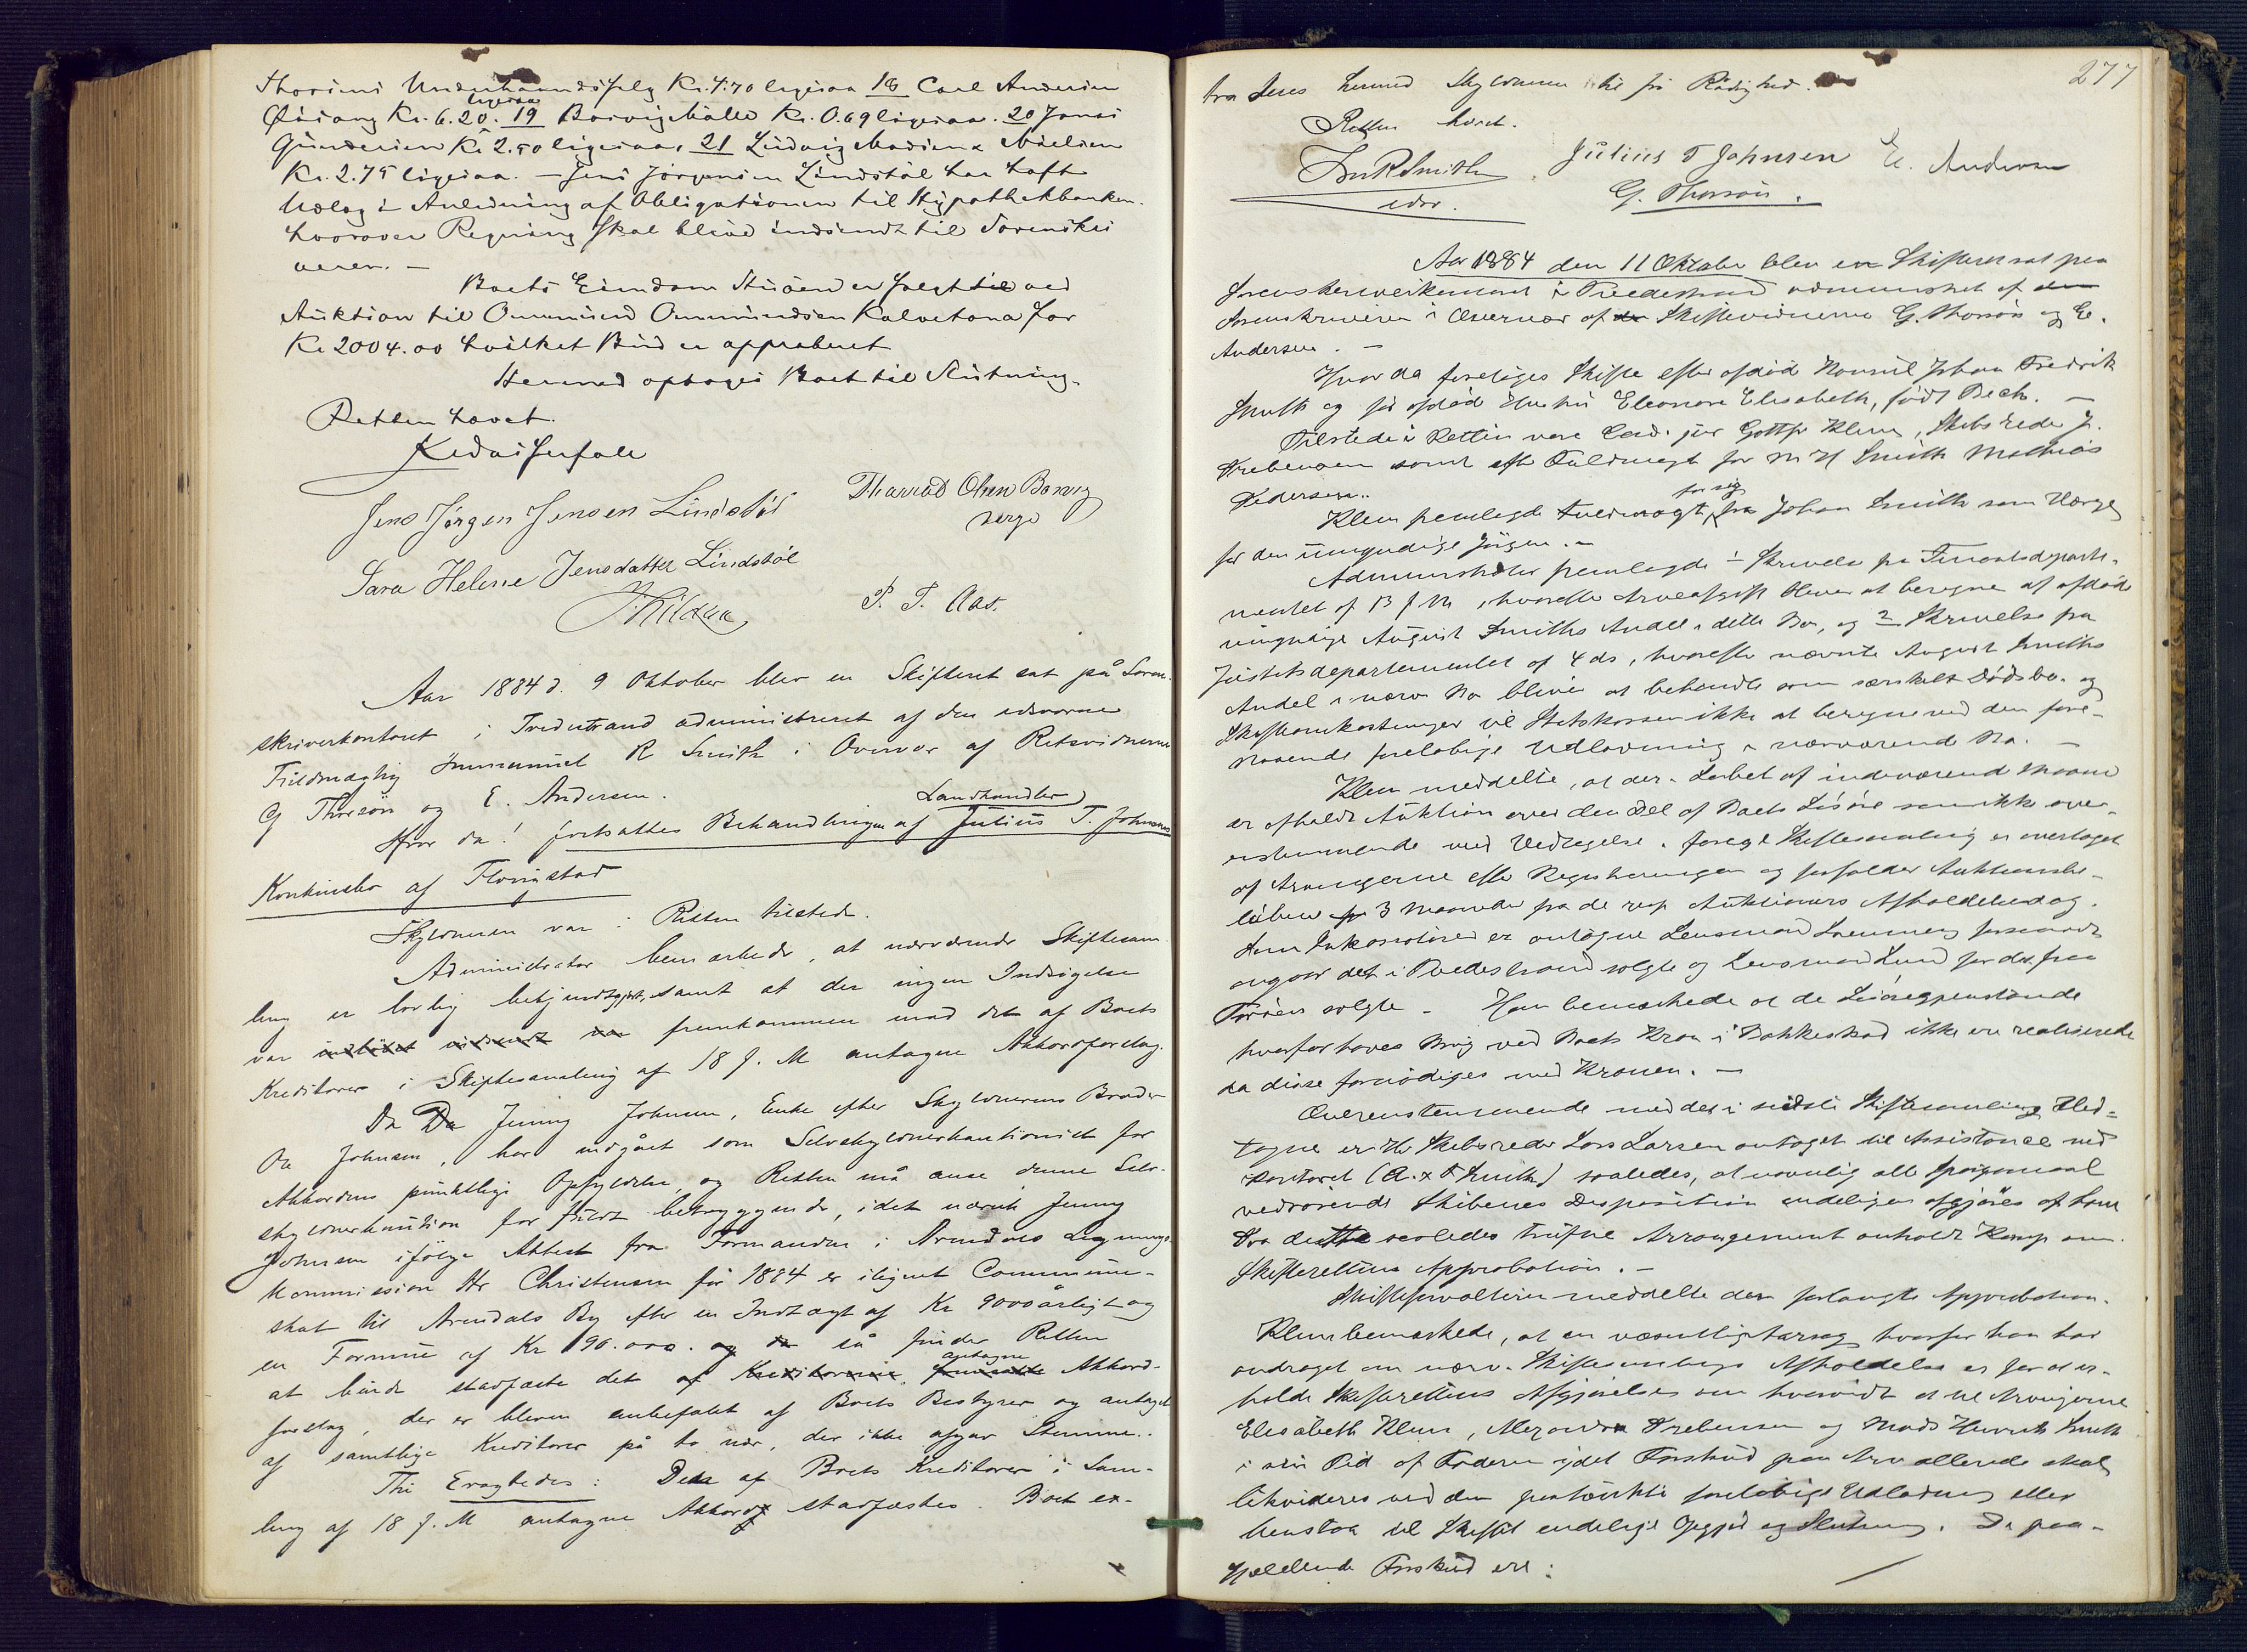 Thorsens Underhaandssalg Kr. 4.70 ligesaa 18 Carl Andersen
ligesaa
Kr. 6.20. 19 Borvig Kr. 0.69 ligesaa. 20 Jens
Gundersen Kr 2.50 ligesaa, 21 Ludvig Nielsen
Kr. 2.75 ligesaa. – Jens Jørgensen Lindstøl har havt
Udlæg i Anledning af Obligationen til Hypothekbanken.
hvorover Regning skal blive indsendt til Sorenskri
veren. –
Boets Eiendom er solgt ved
Auktion til Ommund Ommundsen Kalvetona for
Kr 2004.00 hvilket Bud er approberet
Hermed optoges Boet til Slutning.
Retten hævet.
Jens Jørgen Jensen Lindstøl
Tharald Olsen Borvig
verge
Sara Helene Jensdatter Lindstøl
P. T. Aas.
Aar 1884 d. 9 Oktober blev en Skifteret sat på Soren-
skriverkontoret i Tvedestrand administreret af den edsvorne
Fuldmægtig Immanuel R Smith i Overvær af Retsvidnerne
G Thorsøn og E. Andersen.
Landhandler
Hvor da! fortsattes Behandlingen af Julius T. Johnsens
Konkursbo af Flosta
Skyldneren var i Retten tilstede.
Administrator bemærkede, at nærværende Skiftesam-
ling er lovlig bekjendtgjort, samt at der ingen Indsigelse
var fremkommen mod det af Boets
Kreditorer i Skiftesamling af 18 f. M antagne Akkordforslag.
Da Da Jenny Johnsen, Enke efter Skyldnerens Broder
Johnsen, har indgået som Selvskyldnerkautionist for
Akkordens punktlige Opfyldelse, og Retten må anse denne Selv-
skyldnerkaution for fuldt betryggende, idet nævnte Jenny
Johnsen ifølge Attest fra Formanden i Arendals Lignings-
kommission Hr Christensen for 1884 er ilignet Commune-
skat til Arendals By efter en Indtægt af Kr 9000 årligt og
en Formue af Kr 190.000. og da så finder Retten
antagne
at burde stadfæste det af Kreditorerne Akkord-
forslag, der er bleven anbefalet af Boets Bestyrer og antaget
af samtlige Kreditorer på to nær, der ikke afgav Stemme.
Thi Eragtedes: Det af Boets Kreditorer i Sam-
ling af 18 f. M antagne Akkord stadfæstes. Boet ex-
277
tra leres hermed Skyldneren til fri Rådighed.
Retten hævet.
Im R Smith
edsv.
Julius T Johnsen
E. Andersen
G. Thorsøn.
Aar 1884 den 11 Oktober blev en Skifteret sat paa
Sorenskriverkontoret i Tvedestrand administreret af
Sorenskriveren i Overvær af Skiftevidnerne G. Thorsøn og E.
Andersen. –
Hvor da foretoges Skifte efter afdød Konsul Johan Fredrik
Smith og før afdød Hustru Eleonore Elisabeth, født Bech. –
Tilstede i Retten var Cand. jur Gottfr Klem, Skibsreder J.
Frebensen samt efter Fuldmagt for M H Smith Mathias
Pedersen.
for sig
Klem fremlagde Fuldmagt, fra Johan Smith som Værge
for den umyndige Jørgen. –
Administrator fremlagde 1 Skrivelse fra Finantsdeparte-
mentet af 13 f M, hvorefter Arveafgift bliver at beregne af afdøde
umyndige August Smiths Andel i dette Bo, og 2 Skrivelse fra
Justitsdepartementet af 4 ds, hvorefter nævnte August Smiths
Andel i nærv Bo bliver at behandle som særskilt Dødsbo. og
Skifteomkostninger til Statskassen ikke at beregne ved den fore-
staaende foreløbige Udlodning i nærværende Bo. –
Klem meddelte, at der i Løbet af indeværende Maaned
er afholdt Auktion over den Del af Boets Løsøre som ikke over-
ensstemmende med Vedtagelse i forrige Skiftesamling er overtaget
af Arvingerne efter Registreringen og forfalder Auktionsbe-
løbene 3 Maaneder fra de resp Auktioners Afholdelsesdag.
Som Inkassatorer er antagne Lensmand forsaavidt
angaar det i Tvedestrand solgte og Lensmand Lund for det paa
solgte – Han bemærkede at de Løsøregjenstande
hvorfor haves Brug ved Boets Kran i Bakkeskad ikke ere realiserede
da disse fornødiges med Kranen. –
Overensstemmende med det i sidste Skiftesamling Ved-
tagne er Hr Skibsreder Lars Larsen antaget til Assistance ved
Kontoret (A. & F Smith) saaledes, at navnlig alle Spørgsmaal
vedrørende Skibenes Disposition endeligen afgjøres af ham
For dette saaledes trufne Arrangement anholdt Komp om
Skifterettens Approbation. –
Skifteforvalteren meddelte den forlangte Approbation.
Klem bemærkede, at en væsentlig Aarsag hvorfor han har
andraget om nærv. Skiftesamlings Afholdelse er for at er-
holde Skifterettens Afgjørelse om hvorvidt at de Arvingerne
Elisabeth Klem, Frebensen og Mads Henrik Smith
i sin Tid af Faderen ydet Forskud paa Arv allerede skal
likvideres ved den paatænkte foreløbige Udlodning eller
henstaa til Skiftets endelige Opgjør og Slutning. De paa-
gjældende Forskud ere: